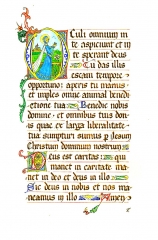 Culi omnium in
te aspiciunt et in
te sperant deus
Tu das illis
escam tempore
oportuno: aperis tu manus
et imples omne animal benedi
ctione tua: Benedic nobis
domine: et omnibus tuis don
is quae ex larga liberalitate
tua sumpturi sumus per Jesum
Christum dominum nostrum
Deus est caritas: qui
manet in caritate ma
net in deo et deus in illo
Sic deus in nobis et nos ma
neamus in illo Amen